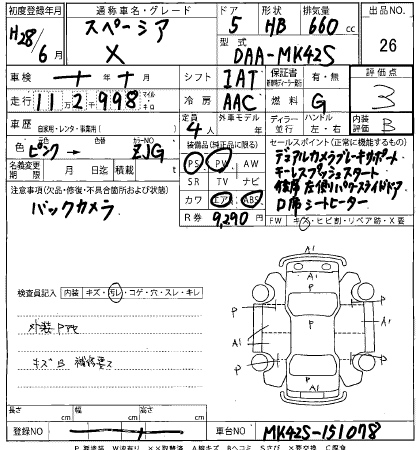 初度登録年月 通称車名・グレード ドア 形状 排気量 出品NO.
H28/6月 スペーシア X 5 HB 660cc 26
型式 DAA-MK42S
車検 年 月 シフト IAT 保証書 有・無 評価点 3
走行 112998 マイル キロ 冷房 AAC 燃料 G
車歴 自家用・レンタ・事業用( ) 定員 4人 外車モデル ディーラー 並行 ハンドル 左・右 内装評価 B
色 ピンク → カラーNO ZJG
装備品(純正品に限る) セールスポイント(正常に機能するもの)
名義変更期限 月 日迄 積載 t
PS PW AW デュアルカメラブレーキサポート
SR TV ナビ キーレスプッシュスタート
カワ エア ABS 左側パワースライドドア
R券 9,290円 D席シートヒーター
注意事項(欠品・修復・不具合箇所および状態)
バックカメラ
FW キズ・ヒビ割・リペア跡・X要
検査員記入 内装 キズ・汚レ・コゲ・穴・スレ・キレ
外装P
キズB
A1
A1
P P
P
A1 A1
P P
P
A1
長さ cm 幅 cm 高さ cm
登録NO 車台NO MK42S-151078
P要塗装 W波有り XX取替済 A線キズ Bヘコミ Sさび X要交換 C腐食